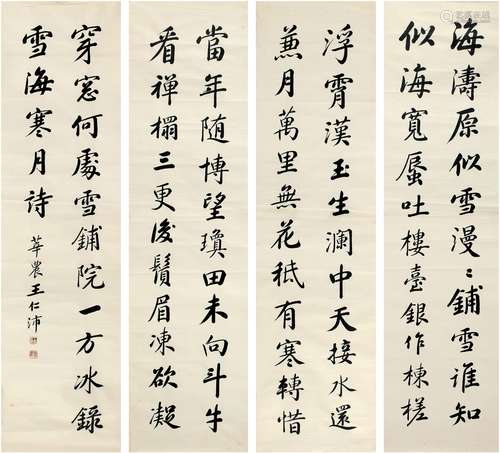 海濤原似雪漫漫鋪雪誰知
似海寬蜃吐樓臺銀作棟槎
浮霄漢玉生瀾中天接水還
兼月萬里無花秪有寒轉惜
當年随博望瓊田未向斗牛
看禪榻三更後鬚眉凍欲凝
穿窓何處雪鋪院一方冰錄
雪海寒月詩
華農王仁沛